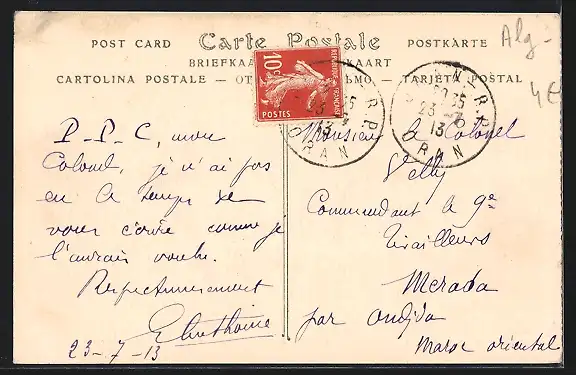 POST CARD Carte Postale POSTKARTE
CARTOLINA POSTALE TARJETA POSTAL
Alg-
4€
10c
REPUBLIQUE FRANÇAISE
POSTES
ORAN
23-7
13
ORAN
P-P-C, mon
Colonel, je n'ai pas
eu le temps de
vous écrire comme je
l'aurais voulu.
Respectueusement
23-7-13
Monsieur le Colonel
Commandant le 9e
Tirailleurs
Merada
par Oudjda
Maroc oriental